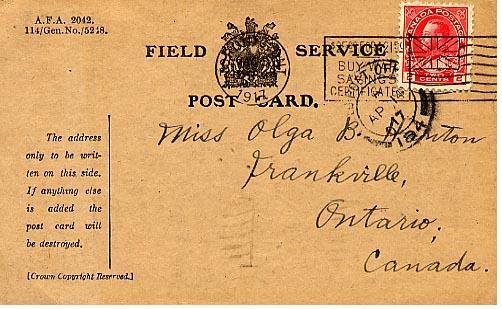 A.F.A. 2042.
114/Gen.No./5248.
FIELD SERVICE
POST CARD.
1917
BUY WAR
SAVINGS
CERTIFICATES
CANADA POSTAGE
TWO
CENTS
AP
17
The address
only to be writ-
ten on this side.
If anything else
is added the
post card will
be destroyed.
[Crown Copyright Reserved.]
Miss Olga B.
Frankville,
Ontario,
Canada.